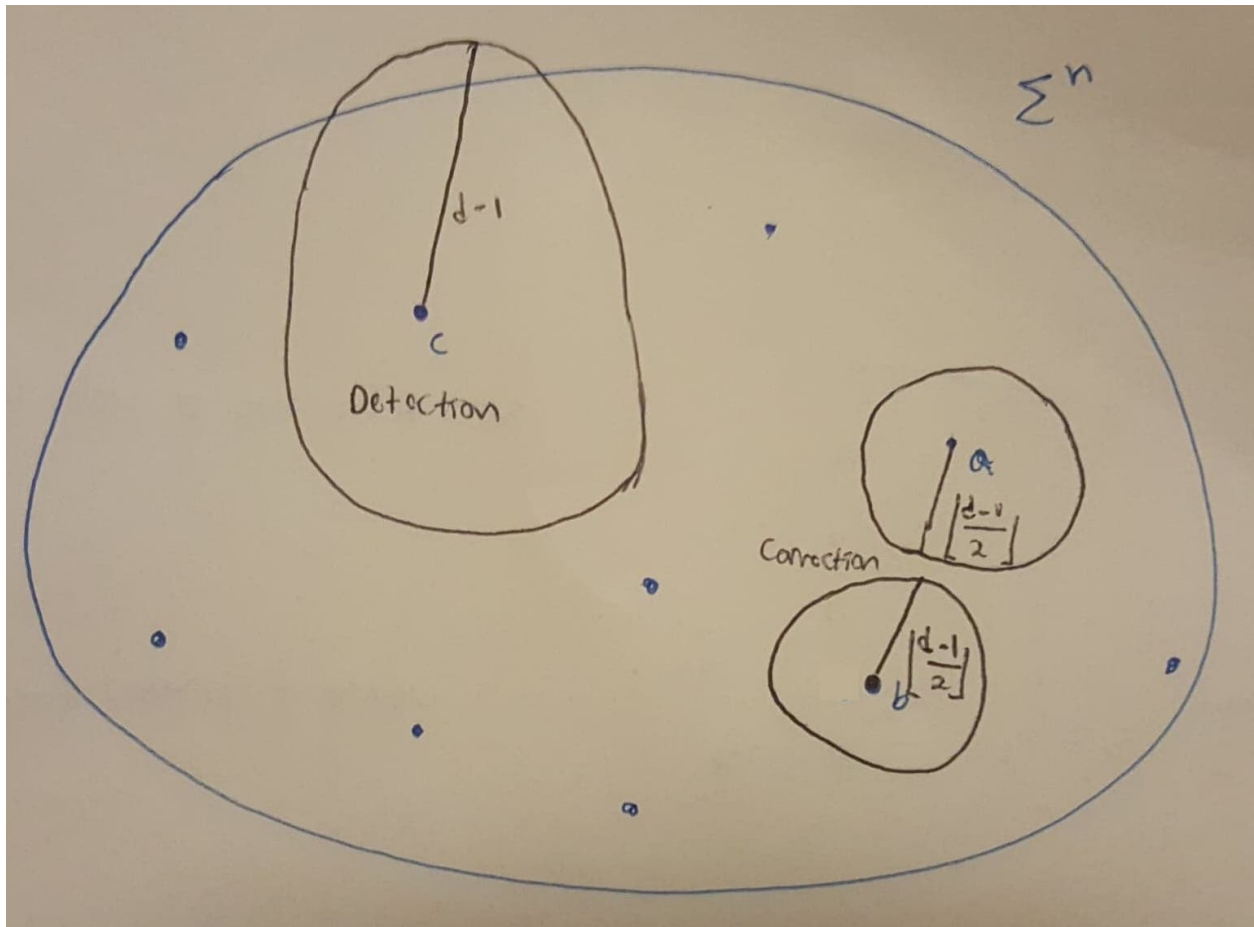 Σⁿ
d-1
c
Detection
a
⌊(d-1)/2⌋
Correction
⌊(d-1)/2⌋
b